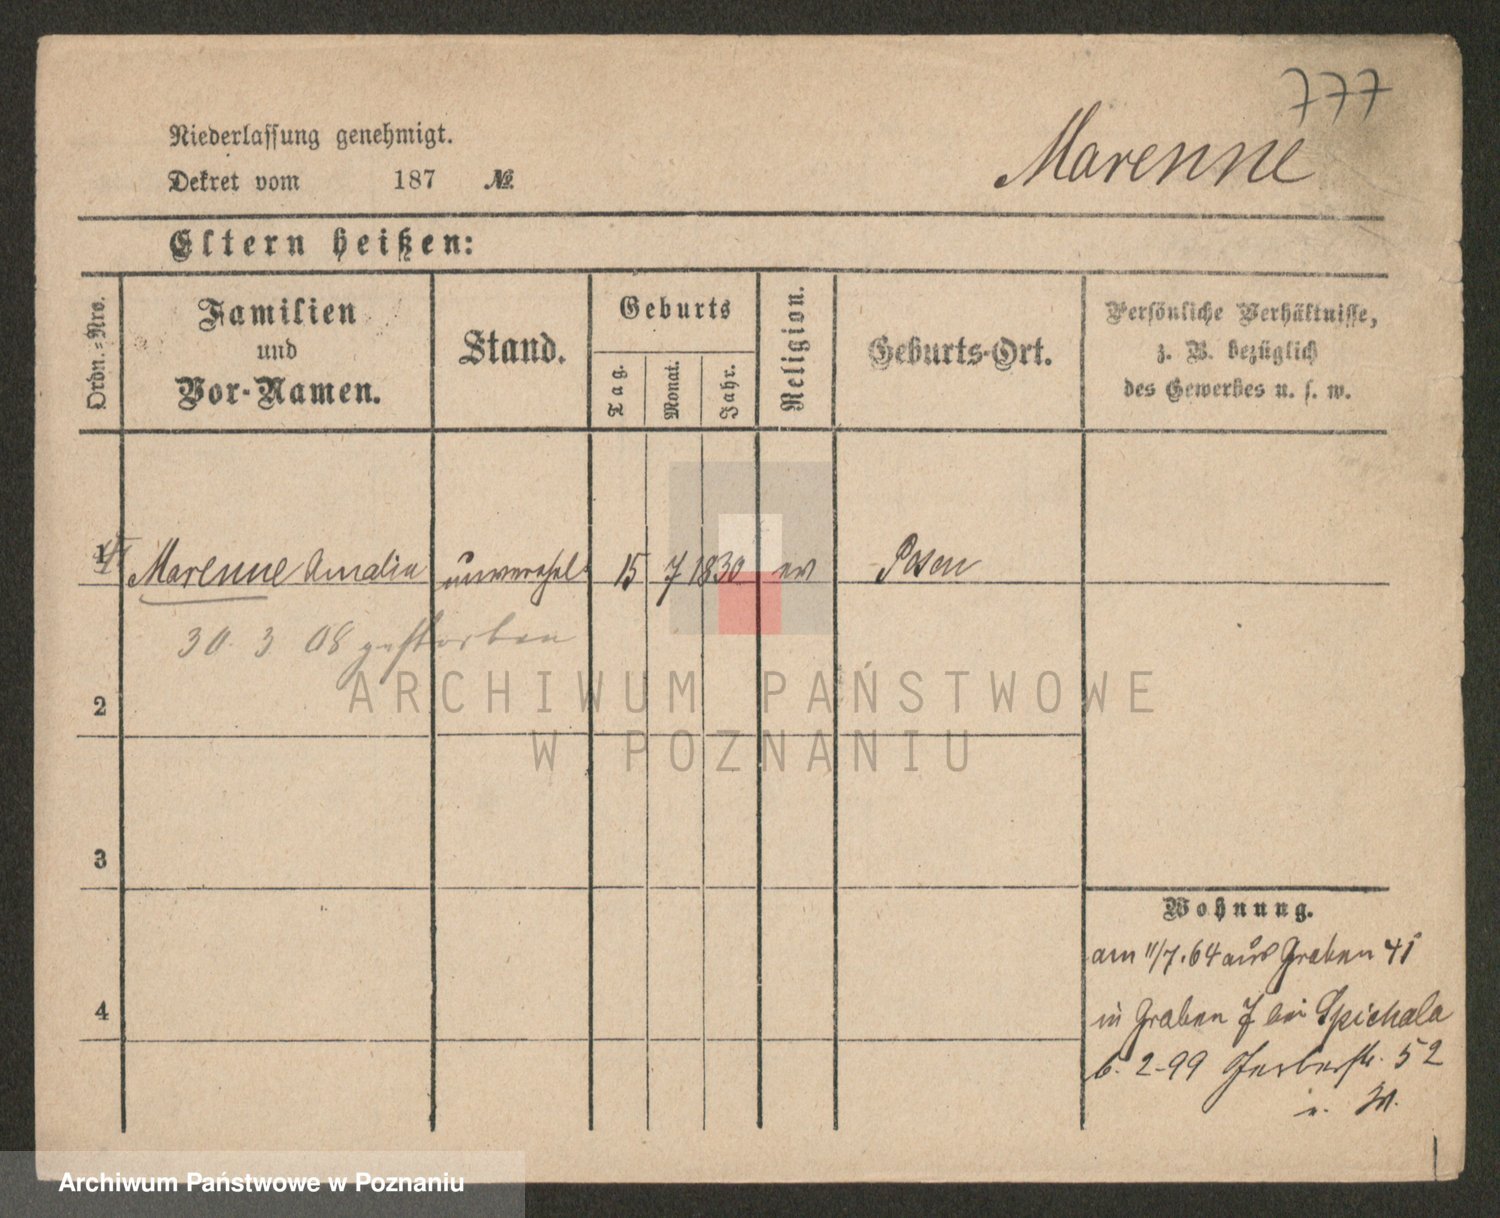 777
Niederlassung genehmigt.
Marenne
Dekret vom 187 №
Eltern heißen:
Ordn.-Nro.
Familien
und
Vor-Namen.
Stand.
Geburts
Tag.
Monat.
Jahr.
Religion.
Geburts-Ort.
Persönliche Verhältnisse,
z. B. bezüglich
des Gewerbes u. s. w.
1 Marenne Amalia unverehel. 15 7 1830 ev Posen
30. 3 08 gestorben
2
3
4
Wohnung.
am 11/7.64 aus Graben 41
in Graben 7 bei Spichala
6. 2-99 Gerberstr. 52
ARCHIWUM PAŃSTWOWE
W POZNANIU
Archiwum Państwowe w Poznaniu